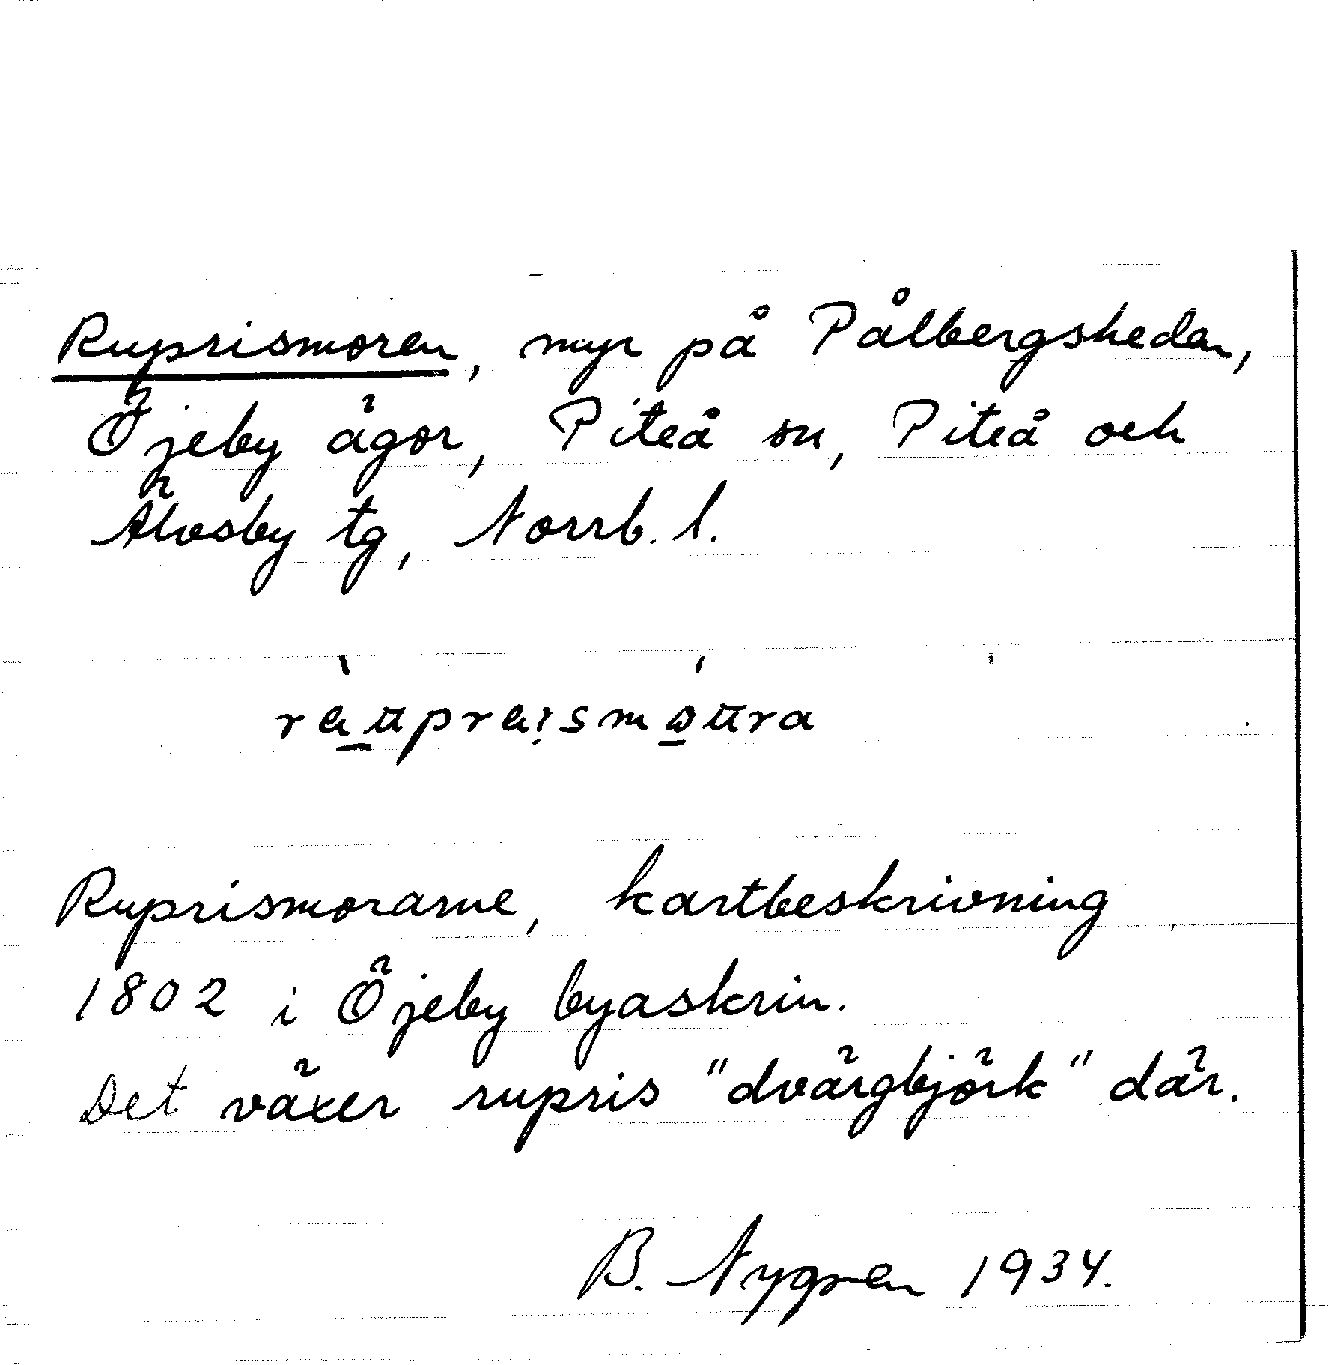 Ruprismoren, myr på Pålbergsheden,
Öjeby ägor, Piteå sn, Piteå och
Älvsby tg, Norrb. l.
Ruprismorarne, kartbeskrivning
1802 i Öjeby byaskrin.
Det växer rupris "dvärgbjörk" där.
B. Nygren 1934.